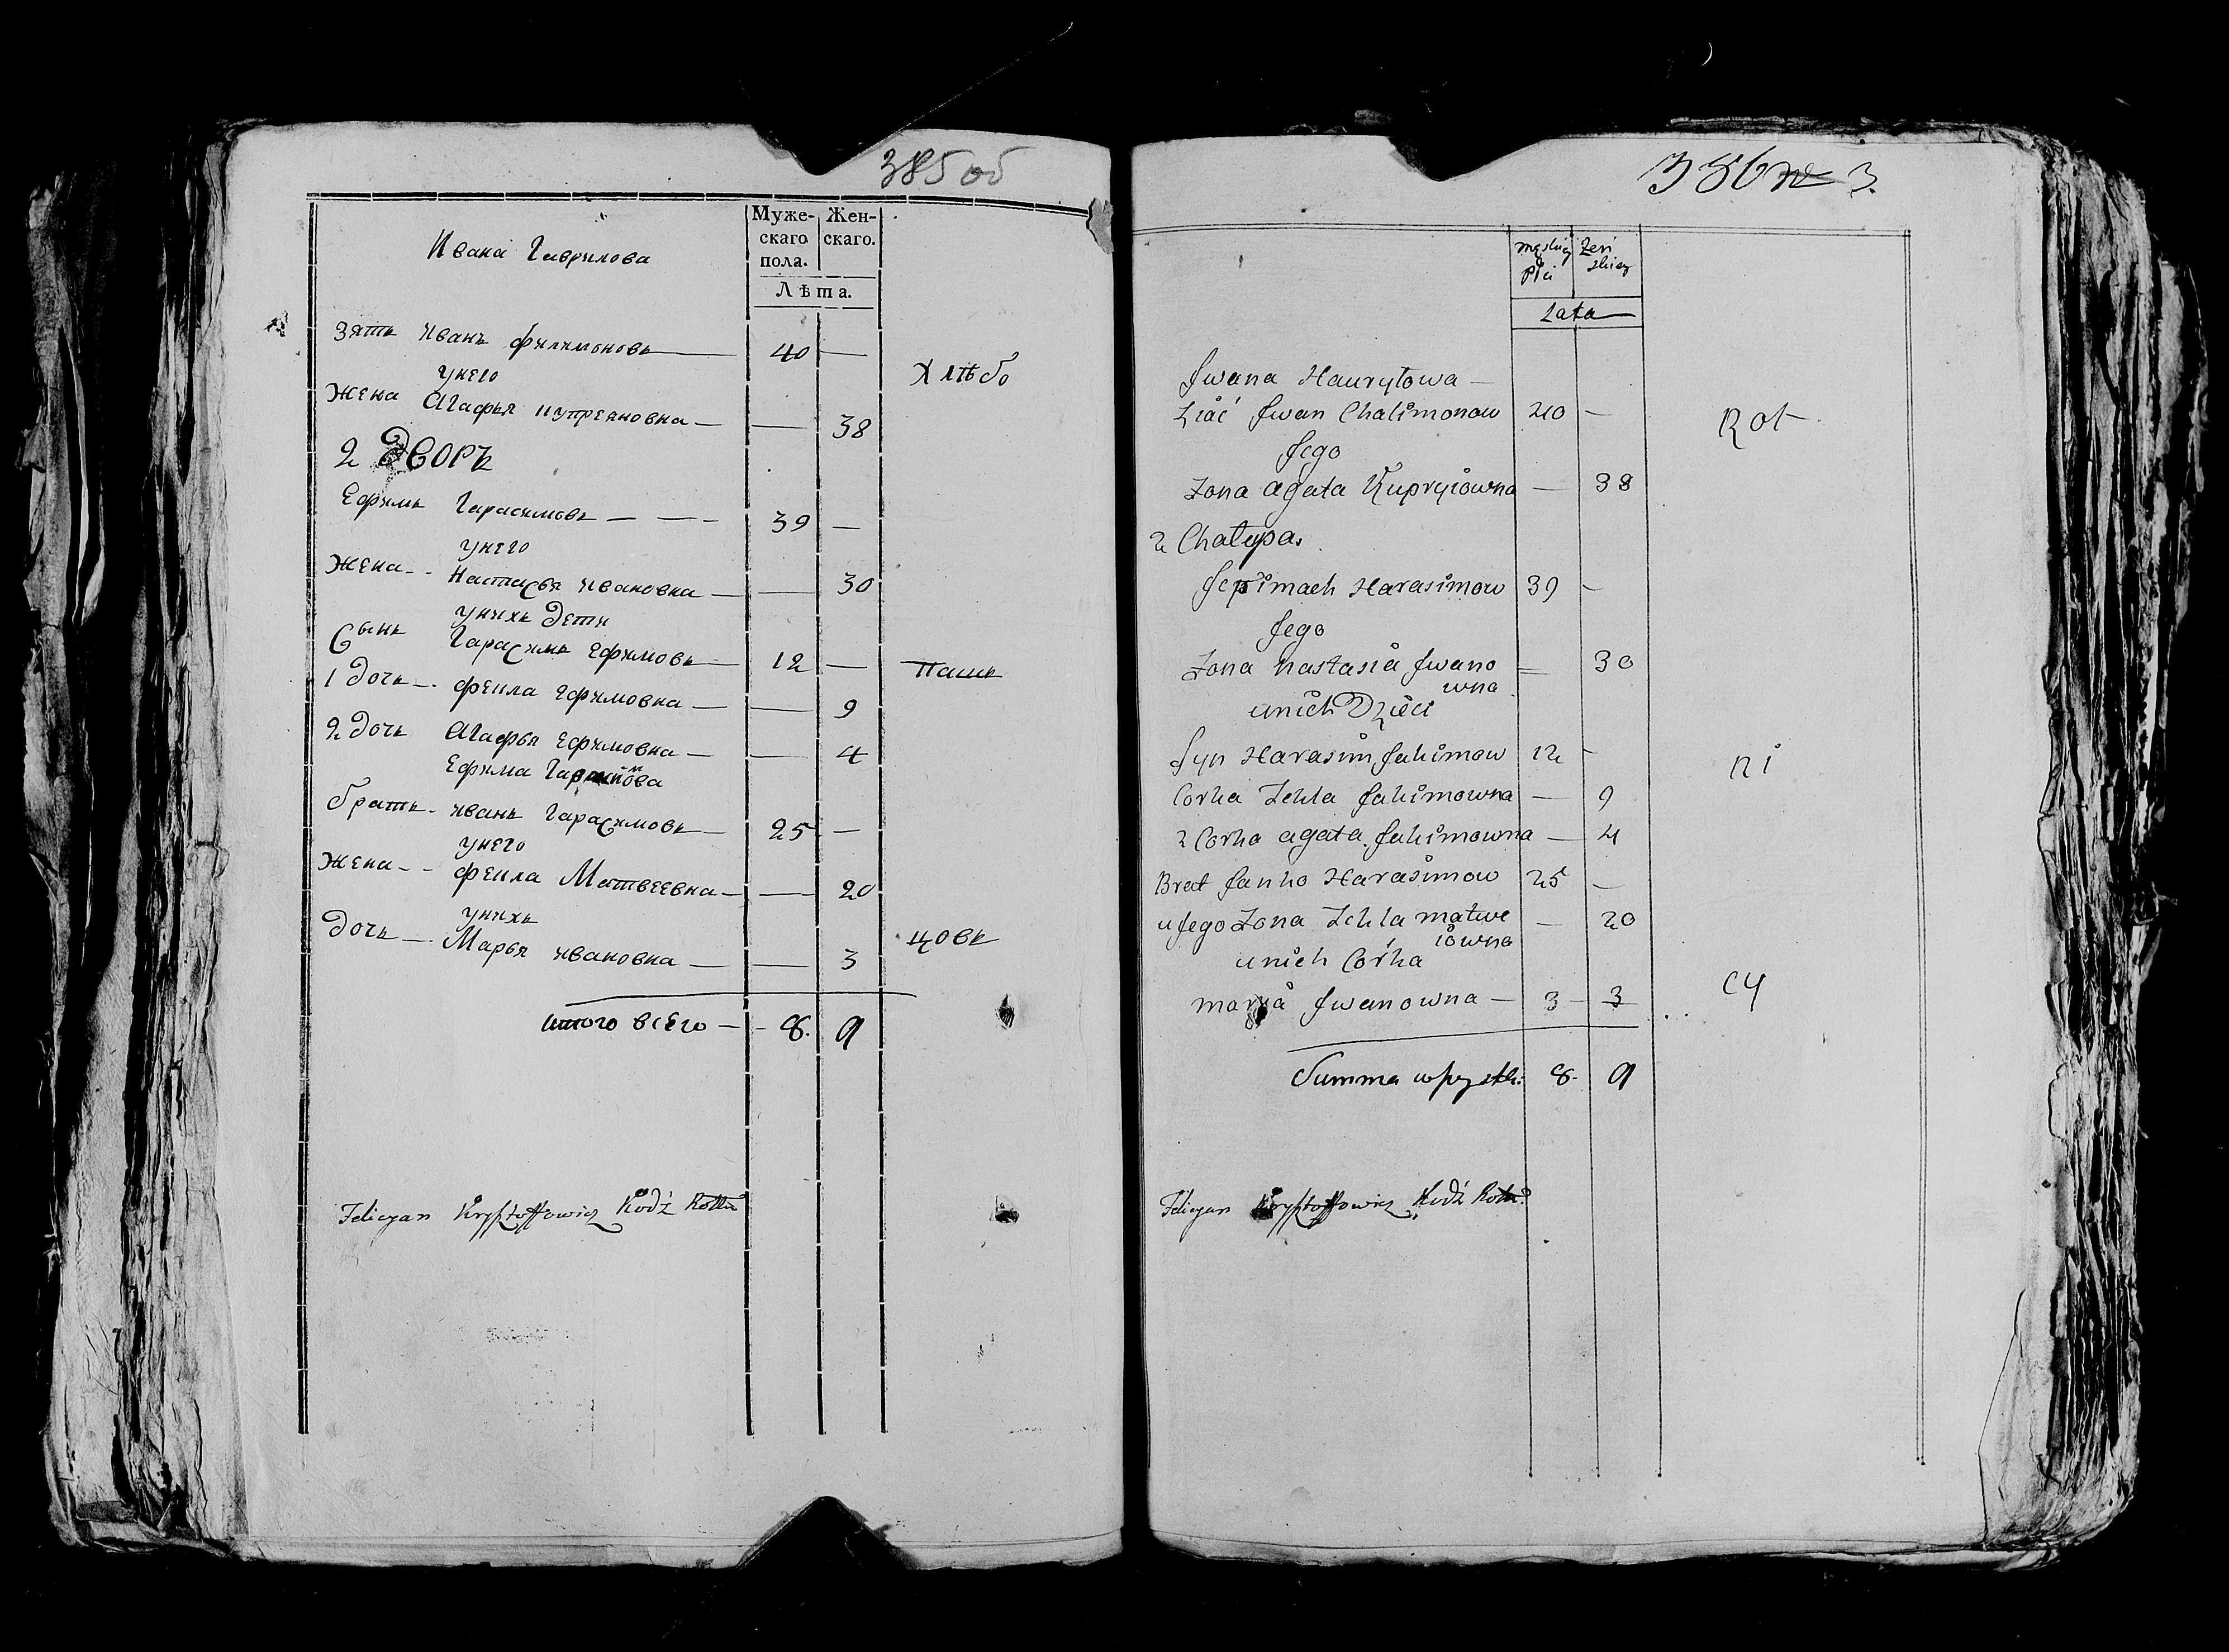 385 об
Ивана Гаврилова
Муже- Жен-
скаго скаго.
пола.
Лѣта.
Зять Иванъ Филимоновъ — 40 —
унего
Жена Агафья Купреяновна — — 38
Хлѣбо
2 Дворъ
Ефимъ Гарасимовъ — — — 39 —
унего
Жена — Настасья Ивановна — — 30
унихъ дети
Сынъ Гарасимъ Ефимовъ — 12 —
Паш
1 Дочь — Фекла Ефимовна — — 9
2 Дочь Агафья Ефимовна — — 4
Ефима
братъ — Иванъ Гарасимовъ — 25 —
унего
Жена — Фекла Матвеевна — — 20
унихъ
Дочь — Марья Ивановна — — 3
цовъ
итого всего — 8. 9
Felicyan Krysztoffowicz Kodź
386 3.
męskiey Żeń
Płci skiey
Lata
Jwana Hauryłowa —
Ziać Jwan Chalimonow 40 —
Rot
Jego
Zona agata Kupryiowna — 38
2 Chałupa.
Harasimow 39 —
Jego
Zona nastasia Jwano — 30
wna
unich Dzieci
Syn Harasim Jakimow 12 —
ni
Corka Tekla Jakimowna — 9
2 Corka agata Jakimowna — 4
Brat Janko Harasimow 25 —
u Jego Zona Tekla matwe — 20
iowna
unich Córka
marya Jwanowna — 3 — 3
cy
Summa 8. 9
Felicyan Krysztoffowicz Kodź